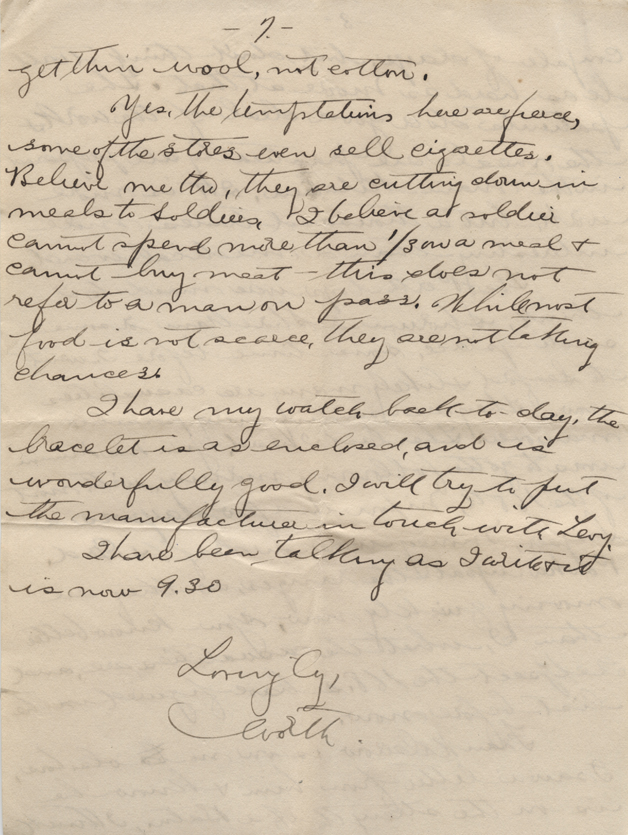 - 7. -
get thin wool, not cotton.
Yes, the temptations here are fierce,
some of the stores even sell cigarettes.
Believe me tho, they are cutting down in
meals to soldiers, I believe a soldier
cannot spend more than 1/3 on a meal &
cannot buy meat - this does not
refer to a man on pass. While most
food is not scarce, they are not taking
chances.
I have my watch back to-day, the
bracelet is as enclosed, and is
wonderfully good. I will try to put
the manufacturer in touch with Levy.
I have been talking as I write & it
is now 9.30
Lovingly,
Worth.